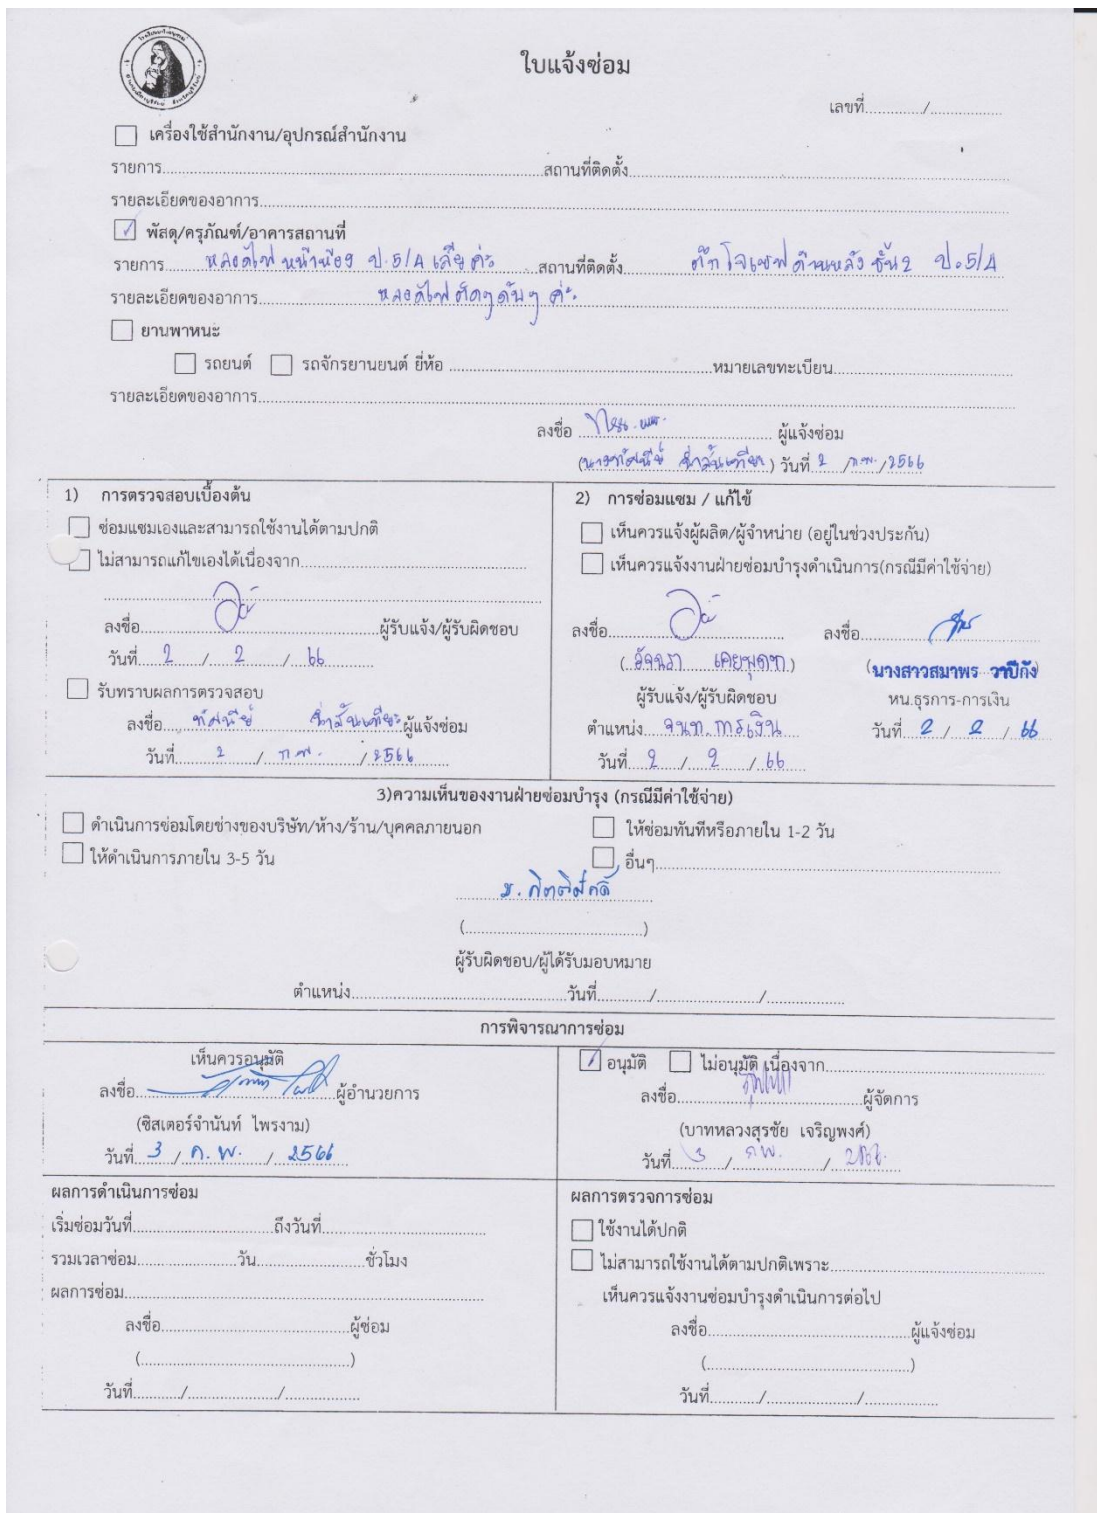 ใบแจ้งซ่อม
เลขที่............/................
เครื่องใช้สำนักงาน/อุปกรณ์สำนักงาน
รายการ..........สถานที่ติดตั้ง..........
รายละเอียดของอาการ..........
พัสดุ/ครุภัณฑ์/อาคารสถานที่
รายการ หลอดไฟหน้าห้อง ป.5/4 เสียค่ะ สถานที่ติดตั้ง ตึกโจเซฟด้านหลัง ชั้น2 ป.5/4
รายละเอียดของอาการ หลอดไฟติดๆดับๆ ค่ะ
ยานพาหนะ
รถยนต์ รถจักรยานยนต์ ยี่ห้อ ..........หมายเลขทะเบียน..........
รายละเอียดของอาการ..........
ลงชื่อ .......... ผู้แจ้งซ่อม
วันที่ 2 /ก.พ./2566
1) การตรวจสอบเบื้องต้น
ซ่อมแซมเองและสามารถใช้งานได้ตามปกติ
ไม่สามารถแก้ไขเองได้เนื่องจาก..........
ลงชื่อ..........ผู้รับแจ้ง/ผู้รับผิดชอบ
วันที่ 2 / 2 / 66
รับทราบผลการตรวจสอบ
ลงชื่อ ทัศนีย์ ผู้แจ้งซ่อม
วันที่ 2 / ก.พ. / 2566
2) การซ่อมแซม / แก้ไข้
เห็นควรแจ้งผู้ผลิต/ผู้จำหน่าย (อยู่ในช่วงประกัน)
เห็นควรแจ้งงานฝ่ายซ่อมบำรุงดำเนินการ(กรณีมีค่าใช้จ่าย)
ลงชื่อ.......... ลงชื่อ..........
(อัจฉรา) (นางสาวสมาพร วาปีกัง)
ผู้รับแจ้ง/ผู้รับผิดชอบ หน.ธุรการ-การเงิน
ตำแหน่ง จนท.การเงิน วันที่ 2 / 2 / 66
วันที่ 2 / 2 / 66
3)ความเห็นของงานฝ่ายซ่อมบำรุง (กรณีมีค่าใช้จ่าย)
ดำเนินการซ่อมโดยช่างของบริษัท/ห้าง/ร้าน/บุคคลภายนอก ให้ซ่อมทันทีหรือภายใน 1-2 วัน
ให้ดำเนินการภายใน 3-5 วัน อื่นๆ..........
ม. กิตติศักดิ์
(..........)
ผู้รับผิดชอบ/ผู้ได้รับมอบหมาย
ตำแหน่ง..........วันที่........../........../..........
การพิจารณาการซ่อม
เห็นควรอนุมัติ
ลงชื่อ..........ผู้อำนวยการ
(ซิสเตอร์จำนันท์ ไพรงาม)
วันที่ 3 / ก.พ. / 2566
อนุมัติ ไม่อนุมัติ เนื่องจาก..........
ลงชื่อ..........ผู้จัดการ
(บาทหลวงสุรชัย เจริญพงศ์)
วันที่ 3 / ก.พ. / 2566
ผลการดำเนินการซ่อม
เริ่มซ่อมวันที่..........ถึงวันที่..........
รวมเวลาซ่อม..........วัน..........ชั่วโมง
ผลการซ่อม..........
ลงชื่อ..........ผู้ซ่อม
(..........)
วันที่........../........../..........
ผลการตรวจการซ่อม
ใช้งานได้ปกติ
ไม่สามารถใช้งานได้ตามปกติเพราะ..........
เห็นควรแจ้งงานซ่อมบำรุงดำเนินการต่อไป
ลงชื่อ..........ผู้แจ้งซ่อม
(..........)
วันที่........../........../..........